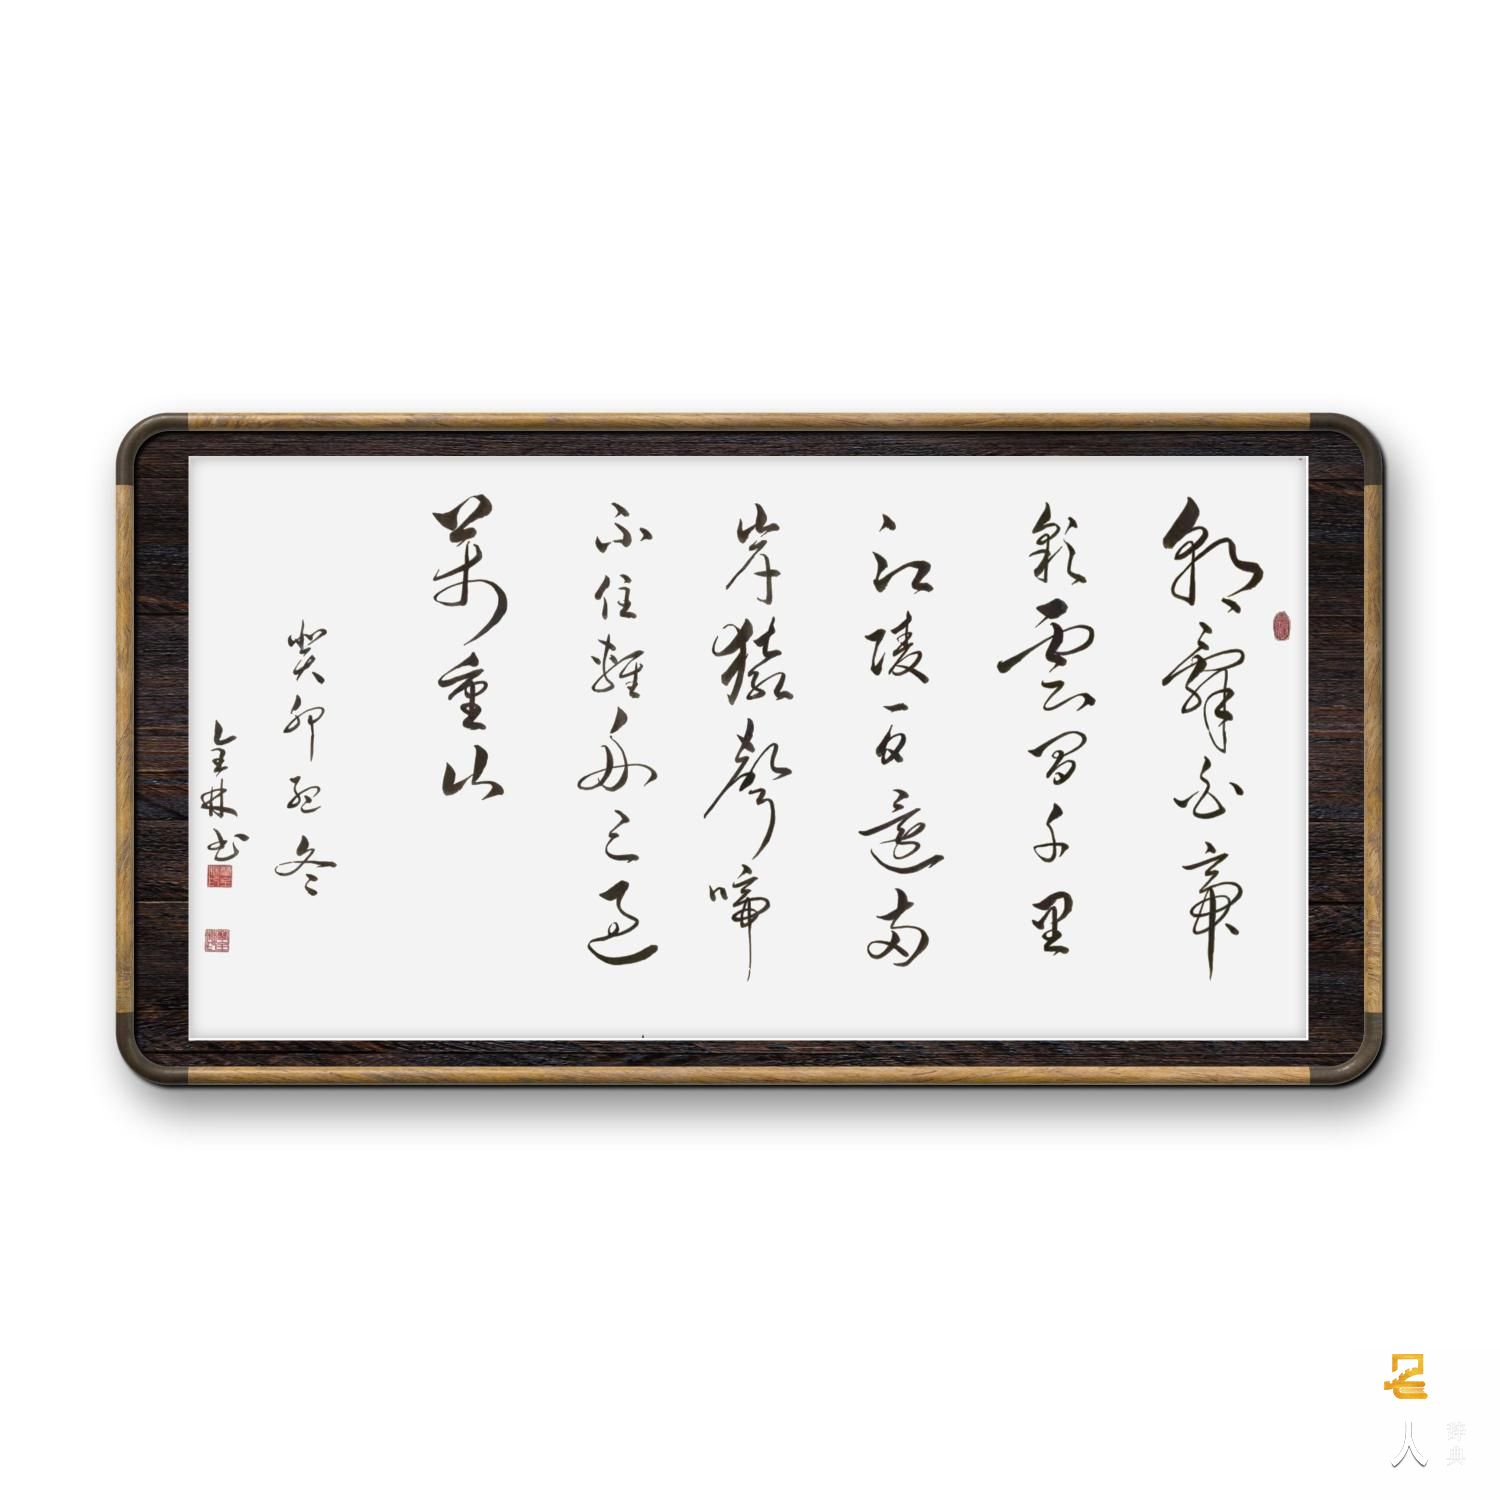 朝辭白帝
彩雲間千里
江陵一日還兩
岸猿聲啼
不住輕舟已過
萬重山
癸卯孟冬
全林书
名人
辞典